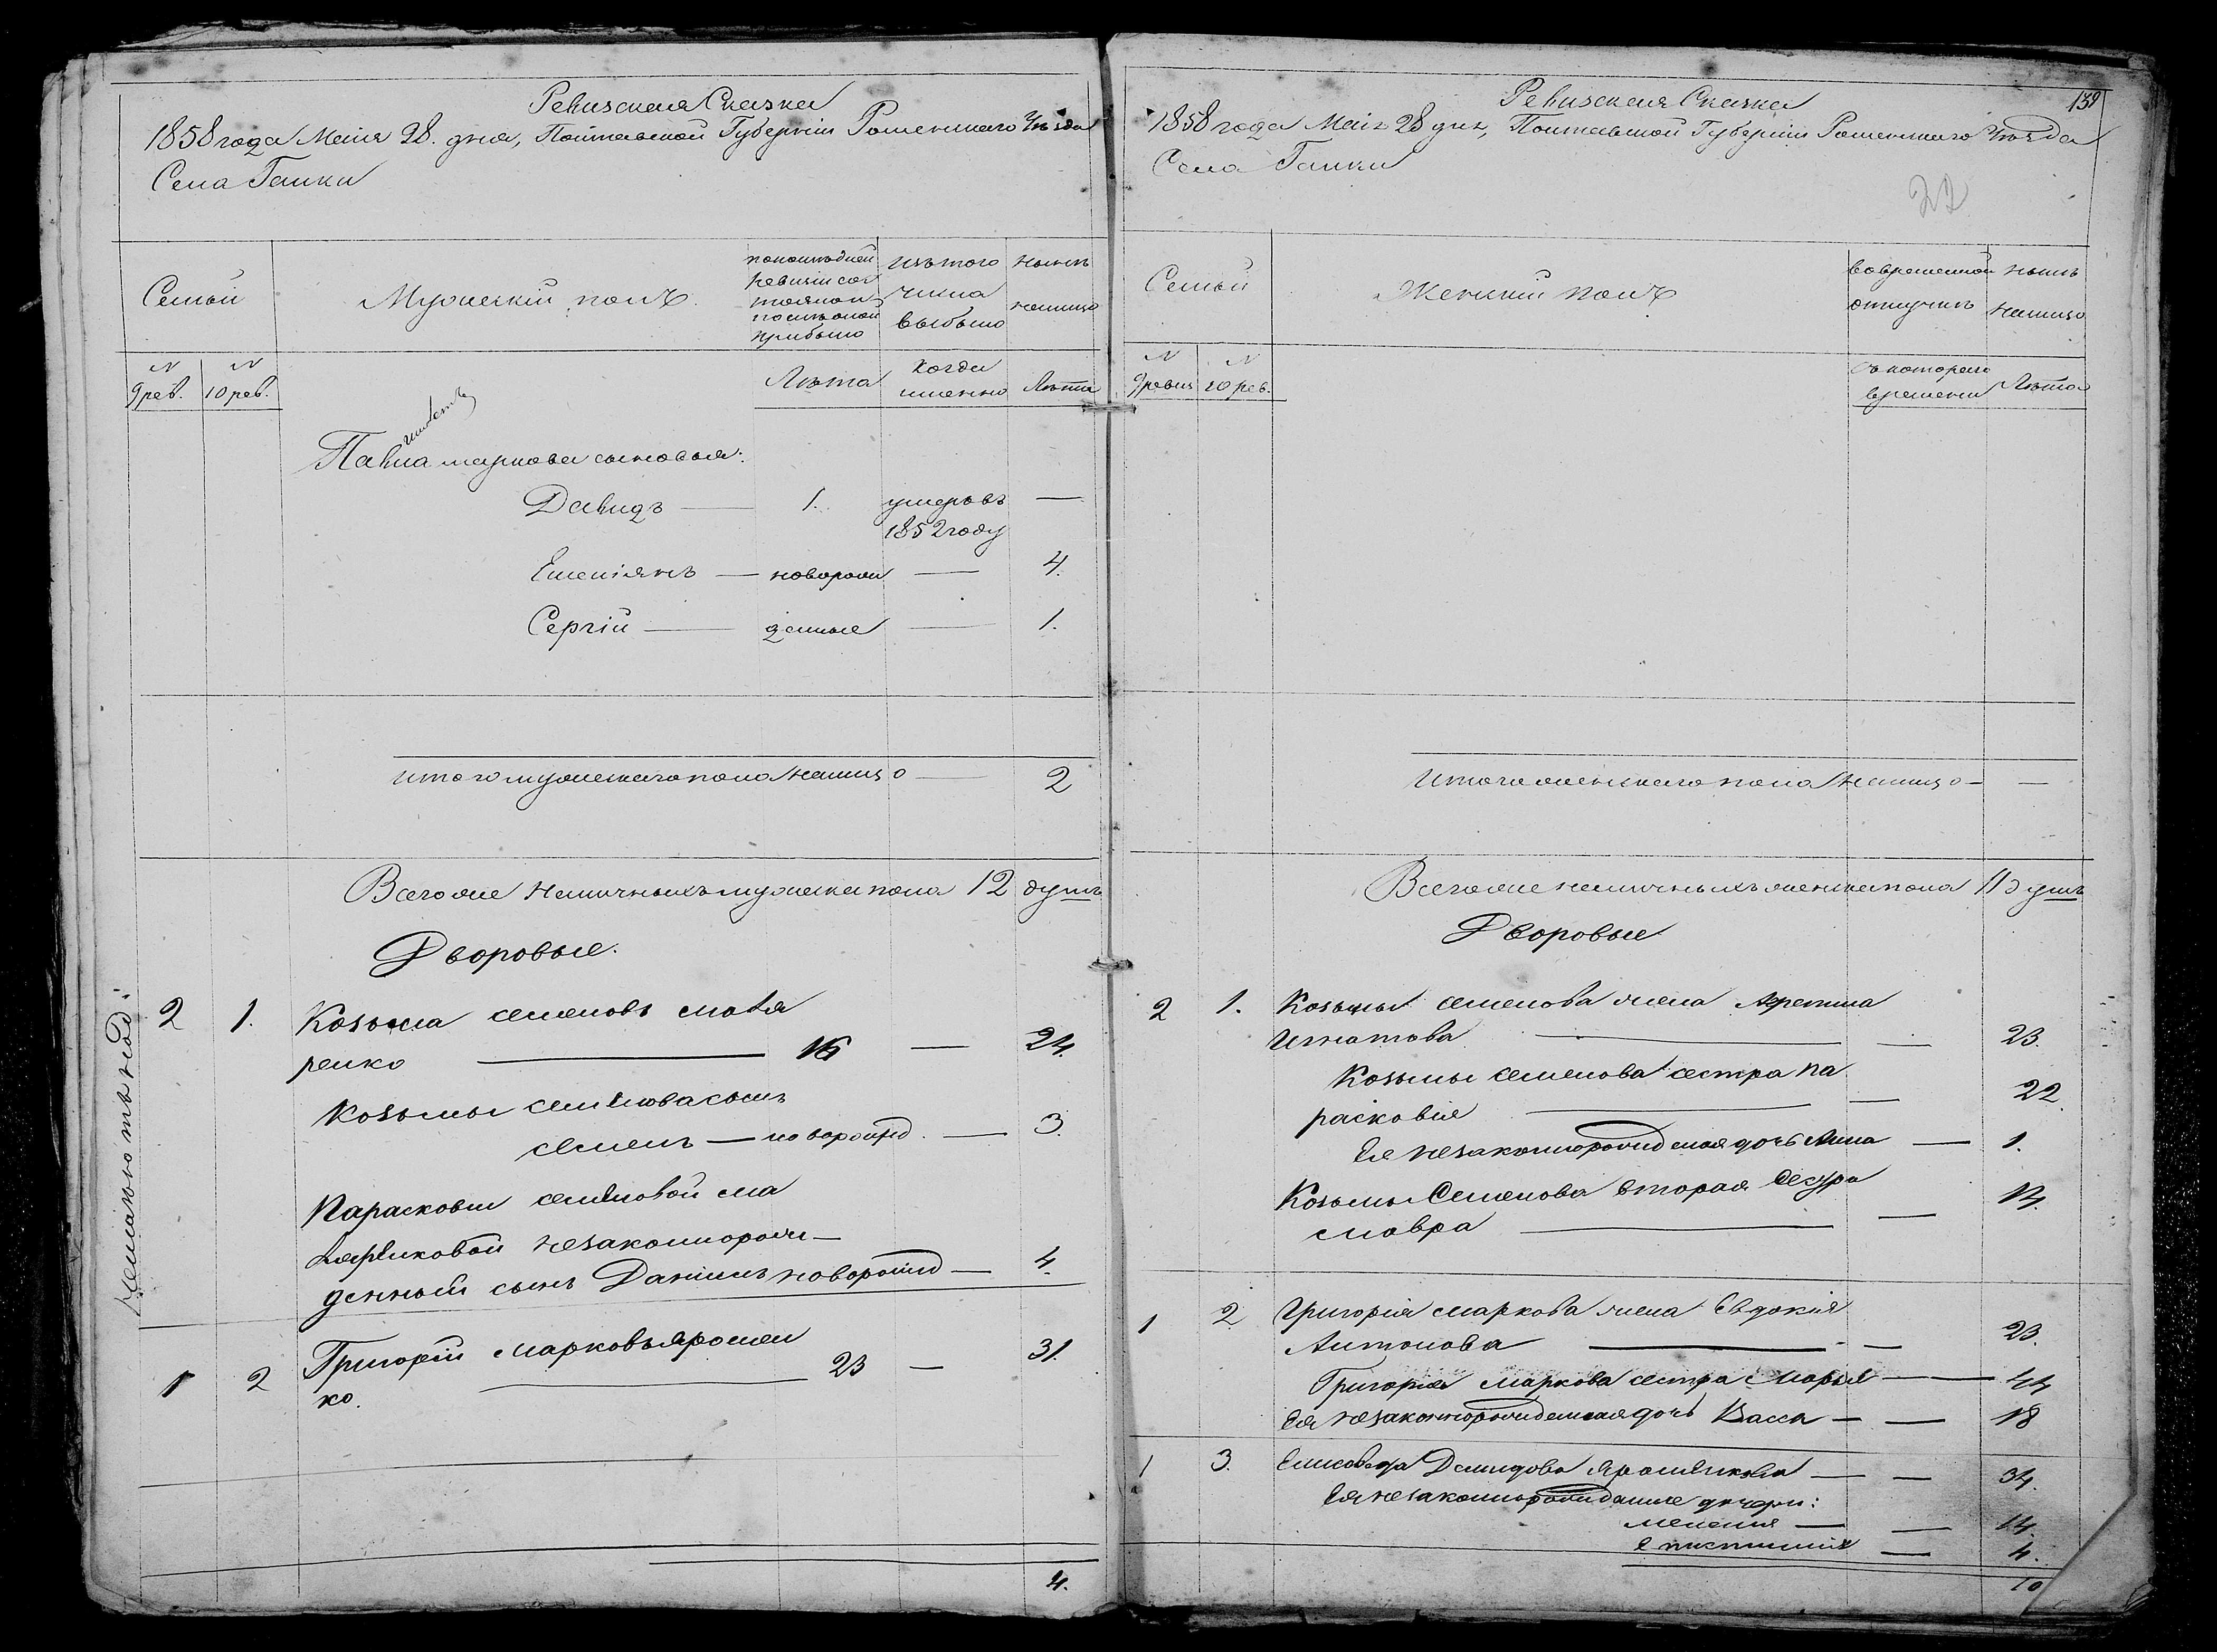 Ревизская Сказка
1858 года Маия 28. дня, Полтавской Губерніи Роменского Уѣзда
Села Галки
Семьи
Мужескій полъ
по последней
ревизіи сос
тояло и
после оной
прибыло
изъ того
числа
выбыло
нынѣ
налицо
N
9 рев.
N
10 рев.
Лѣта
когда
именно
Лѣта
Павла Маркова сыновья:
Давидъ — 1. умеръ въ —
1852 году
Емеліянъ — новорож — 4.
Сергій — денные — 1.
итого мужескаго пола налицо — 2
Всего же наличныхъ мужеска пола 12 душъ
Дворовые.
2 1. Козьма Семеновъ
ренко — 16 — 24.
Козьмы Семенова сынъ
Семенъ — новорожд. — 3.
Парасковьи Семеновой
незаконорож—
денный сынъ Даніилъ новорожд — 4.
1 2 Григорій Марковъ Ярошен
ко. — 23 — 31.
4.
Ревизская Сказка
139
1858 года Маія 28 дня, Полтавской Губерніи Роменского Уѣзда
Села Галки
22
Семьи
Женскій полъ
во временной
отлучкѣ
нынѣ
налицо
N
9 ревиз
N
10 рев.
съ котораго
времени
Лѣта
итого женскаго пола налицо — —
Всего же наличныхъ женска пола 11 душъ
Дворовые
2 1. Козьмы Семенова жена
Игнатова — — 23.
Козьмы Семенова сестра Па
расковія — — 22.
Ея незаконнорожденная дочь Анна — 1.
Козьмы Семенова вторая сестра
Мавра — — 14.
1 2 Григорія Маркова жена Евдокия
Антонова — — 23.
Григорія Маркова сестра Марья — 44
Ея незаконнорожденная дочь Васса — — 18
1 3. Елисавета Демидова Ярошенкова — — 34.
Ея незаконнорожденные дочери:
Меланія — — 14.
— 4.
10